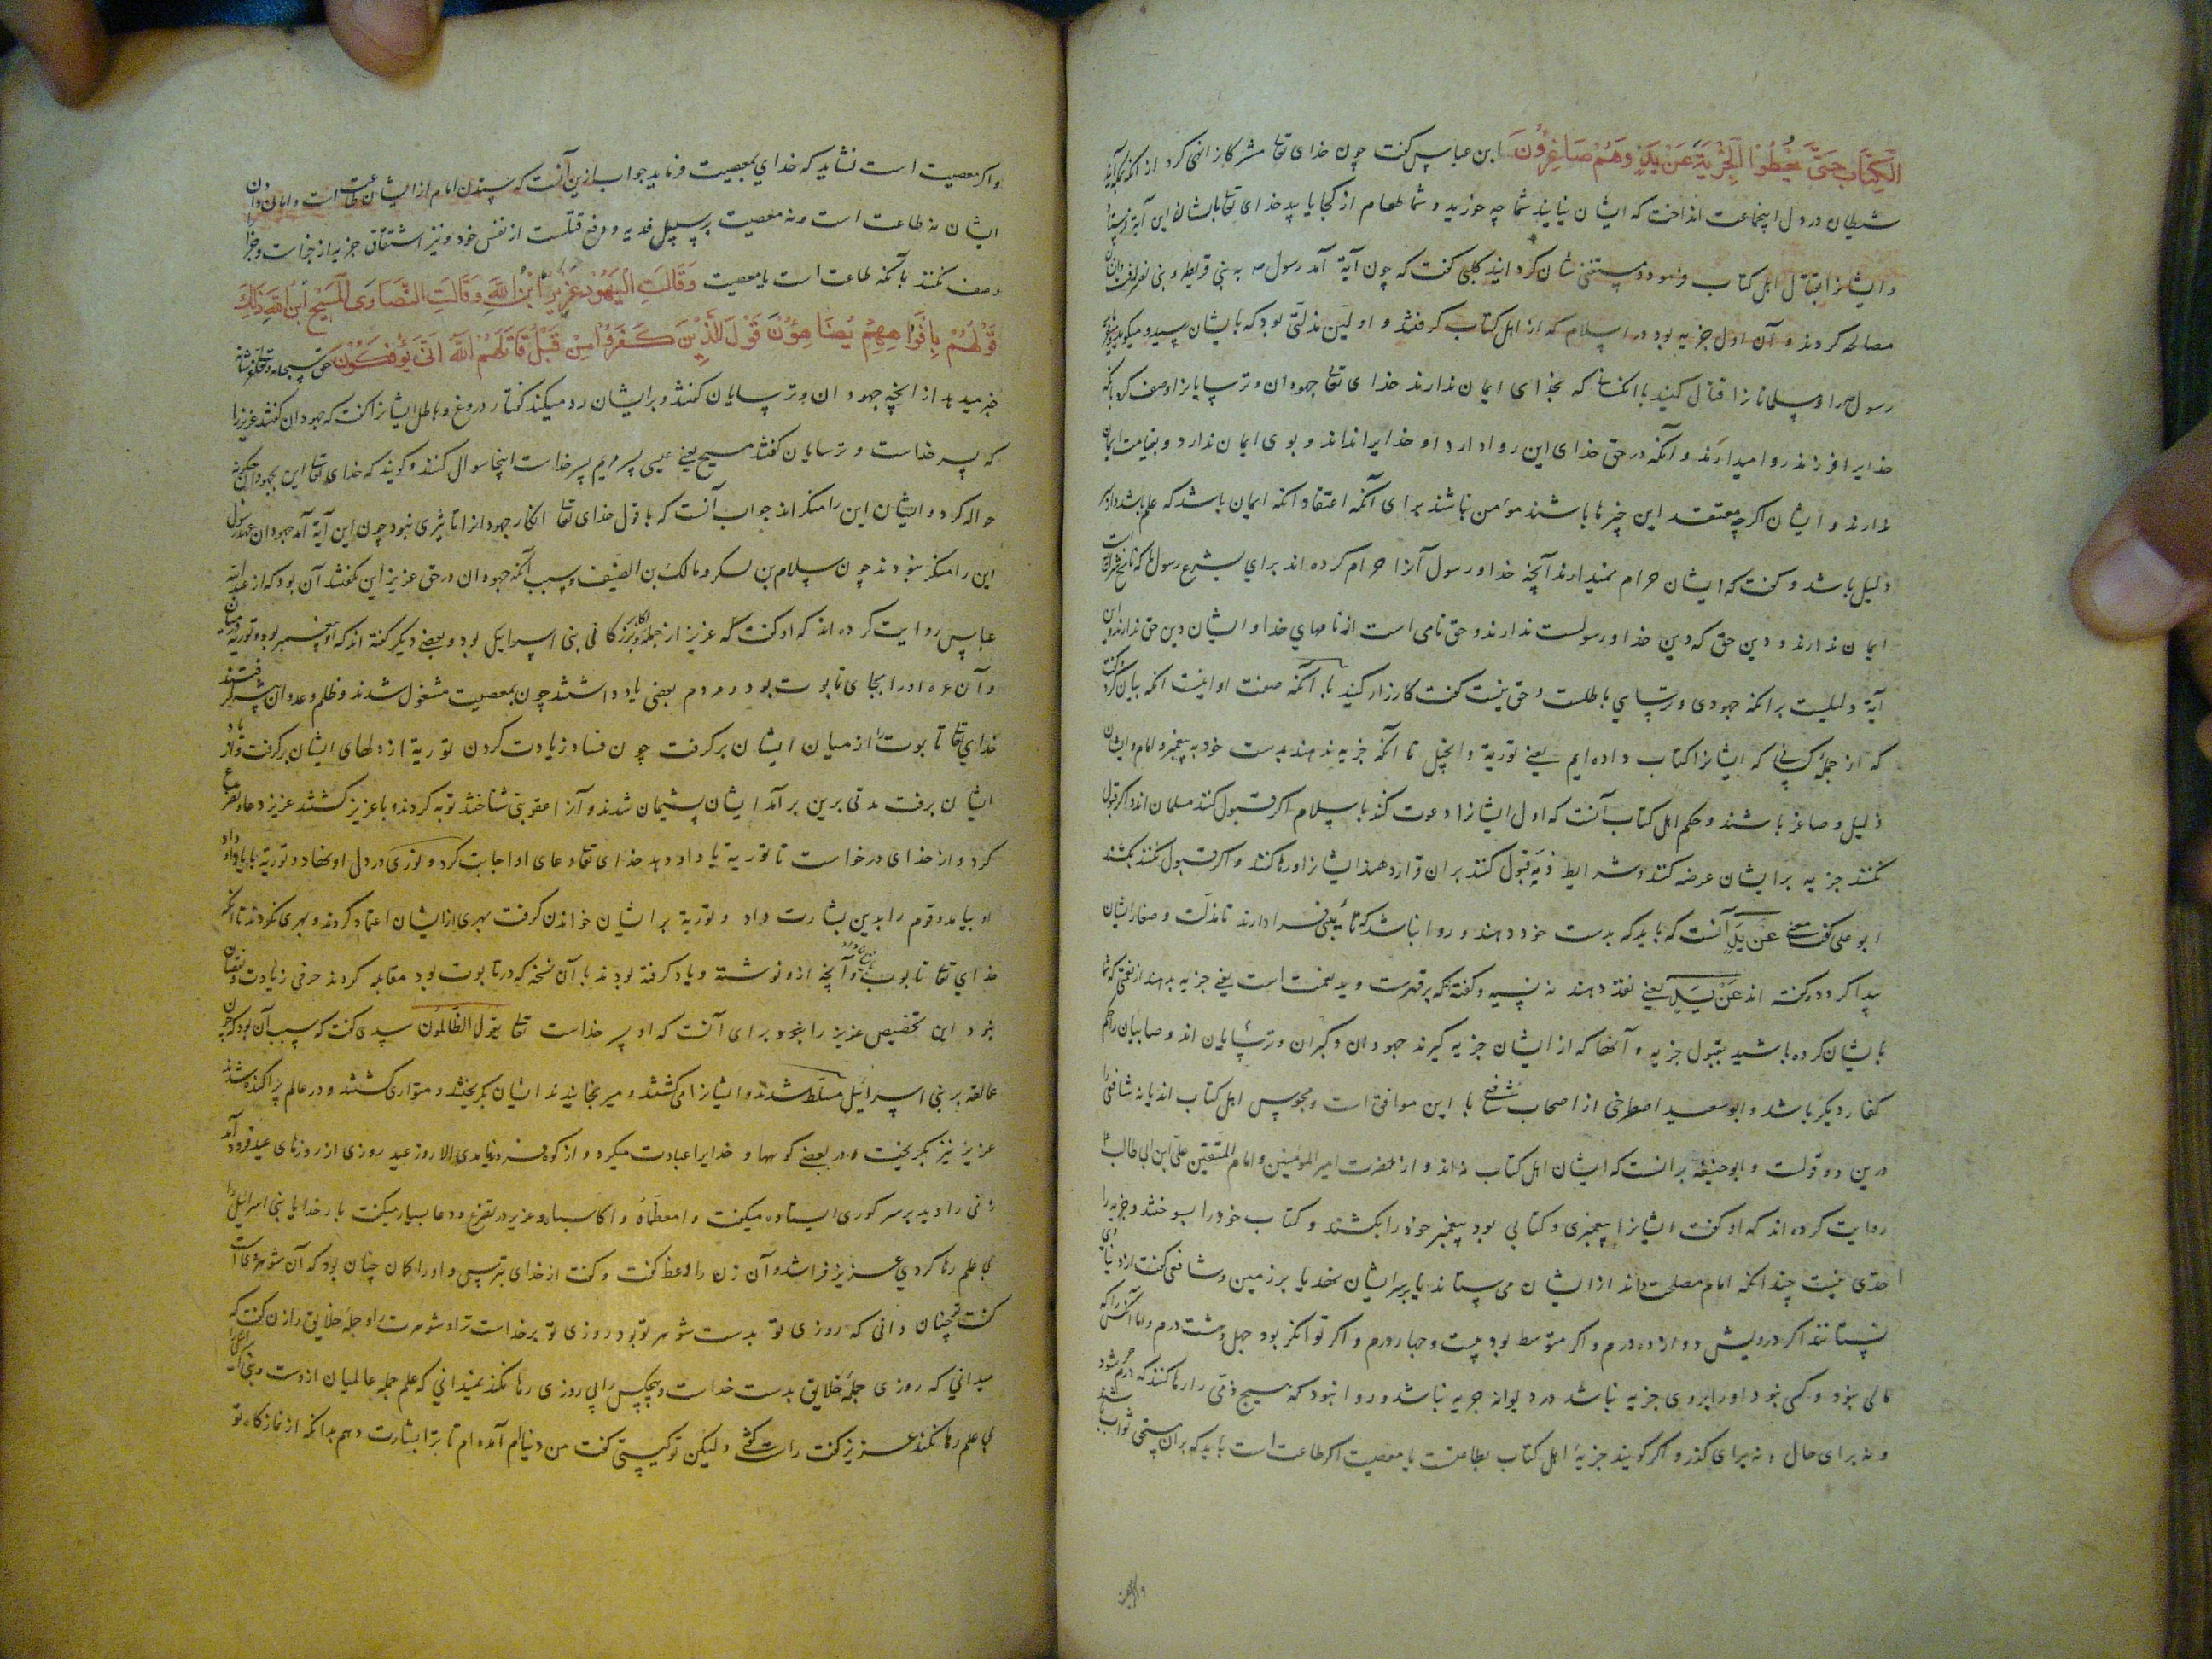 الْكِتَابَ حَتَّى يُعْطُوا الْجِزْيَةَ عَنْ يَدٍ وَهُمْ صَاغِرُونَ ابن عباس گفت چون خدای تعا مشرکانرا نهی کرد از آنکه بمکه آیند
شیطان در دل اینجماعت انداخت که ایشان نیایند شما چه خورید و شما طعام از کجا یابید خدای تعا بایشان این آیة فرستاد
و ایشانرا بقتال اهل کتاب فرمود و مستغنی شان گردانید کلبی گفت که چون آیة آمد رسول ص به بنی قریظه و بنی نضیر
مصالحه کردند و آن اول جزیه بود در اسلام که از اهل کتاب گرفتند و اولین مذلتی بود که بایشان رسید و میگوید
رسول ص را و مسلمانانرا قتال کنید با آنکسانی که بخدای ایمان ندارند خدای تعا جهودان و ترسایانرا وصف کرد بآنکه
خدایرا فرزند روا میدارند و آنکه در حق خدای این روا دارد او خدایرا نداند و بوی ایمان ندارد و بقیامت ایمان
ندارند و ایشان اگرچه معتقد این چیزها باشند مؤمن نباشند برای آنکه اعتقاد آنکه ایمان باشد که علم باشد و از سر
دلیل باشد و گفت که ایشان حرام نمیدارند آنچه خدا و رسول آنرا حرام کرده اند برای بشرع رسول ما که ناسخ شرایع است
ایمان ندارند و دین حق که دین خدا و رسولست ندارند و حق نامی است از نامهای خدا و ایشان دین حق ندارند و این
آیة دلیلیست بر آنکه جهودی و ترسایی باطلست و حق نیست گفت کارزار کنید با آنکه صفت او اینست آنکه بیان کرد و گفت
که از جمله کسانی که ایشانرا کتاب داده ایم یعنے توریة و انجیل تا آنکه جزیه ندهند بدست خود به پیغمبر و امام و ایشان
ذلیل و صاغر باشند و حکم اهل کتاب آنست که اول ایشانرا دعوت کند باسلام اگر قبول کنند مسلمان اند و اگر قبول
نکنند جزیه بر ایشان عرضه کنند و شرایط ذمّه قبول کنند بر آن قرار دهند ایشانرا و رها کنند و اگر قبول نکنند بکشند
ابو علی گفت معنی عَنْ يَدٍ آنست که باید که بدست خود دهند و روا نباشد که نایبی فرا دارند تا مذلّت و صغار ایشان
پیدا گردد و گفته اند عَنْ يَدٍ یعنے نقد دهند نه نسیه و گفته اند که بر قهرست و ید نعمت است یعنے جزیه بدهند از نعمتی که شما
بایشان کرده باشید بقبول جزیه و آنها که از ایشان جزیه گیرند جهودان و گبران و ترسایان اند و صابیان را حکم
کفار دیگر باشد و ابو سعید اصطرخی از اصحاب شافعی با این موافق است و مجوس اهل کتاب اند یا نه شافعی را
درین دو قولست و ابو حنیفه بر آنست که ایشان اهل کتاب نه اند و از حضرت امیر المؤمنین و امام المتقین علی ابن ابی طالب ع
روایت کرده اند که او گفت ایشانرا پیغمبری و کتابی بود پیغمبر خود را بکشتند و کتاب خود را بسوختند و جزیه را
حدّی نیست چندانکه امام مصلحت داند از ایشان می ستاند یا بر سر ایشان نهد یا بر زمین و شافعی گفت از دیناری
نستانند اگر درویش دوازده درم و اگر متوسط بود بیست و چهار درم و اگر توانگر بود چهل و هشت درم و اما آنکس را که
مالی نبود و کسی نبود او را بروی جزیه نباشد و بر دیوانه جزیه نباشد و روا نبود که هیچ ذمّی را رها کنند که در حرم شود
و نه برای حال و نه برای گذر و اگر گویند جزیهٔ اهل کتاب بطاعتست یا معصیت اگر طاعت است باید که بر آن مستحق ثواب باشند
و اگر معصیت است نشاید که خدای بمعصیت فرماید جواب ازین آنست که ستدن امام از ایشان طاعت است و اما دادن
ایشان نه طاعت است و نه معصیت بر سبیل فدیه و دفع قتلست از نفس خود و نیز اشتقاق جزیه از جزاست و جزا را
وصف نکنند بآنکه طاعت است یا معصیت وَقَالَتِ الْيَهُودُ عُزَيْرٌ ابْنُ اللَّهِ وَقَالَتِ النَّصَارَى الْمَسِيحُ ابْنُ اللَّهِ ذَلِكَ
قَوْلُهُمْ بِأَفْوَاهِهِمْ يُضَاهِؤُنَ قَوْلَ الَّذِينَ كَفَرُوا مِنْ قَبْلُ قَاتَلَهُمُ اللَّهُ أَنَّى يُؤْفَكُونَ حق سبحانه و تعالی
خبر میدهد از آنچه جهودان و ترسایان گفتند و بر ایشان رد میکند گفتار دروغ و باطل ایشانرا گفت که جهودان گفتند عزیر
که پسر خداست و ترسایان گفتند مسیح یعنے عیسی پسر مریم پسر خداست اینجا سوال کنند و گویند که خدای تعا این بجهودان چگونه
حواله کرد و ایشان این را منکر اند جواب آنست که با قول خدای تعا انکار جهودانرا تاثیری نبود چون این آیة آمد جهودان عهد رسول
این را منکر نبودند چون سلام بن مسکر و مالک بن الضیف و سبب آنکه جهودان در حق عزیر این گفتند آن بود که از عبد الله
عباس روایت کرده اند که او گفت که عزیر از جمله بزرگانی بنی اسرائیل بود و بعضے دیگر گفته اند که او پیغمبر بود و توریة
و آن اورا بجای تابوت بود و مردم بعضی یاد داشتند چون بمعصیت مشغول شدند و ظلم و عدوان پیشه گرفتند
خدای تعا تابوت را از میان ایشان برگرفت چون فساد زیادت کردن توریة از دلهای ایشان برگرفت و از یاد
ایشان برفت مدتی برین برآمد ایشان پشیمان شدند و آنرا عقوبتی شناختند توبه کردند و با عزیر گشتند عزیر دعا و تضرع
کرد و از خدای درخواست تا توریة یاد او دهد خدای تعا دعای او اجابت کرد و نوری در دل او نهاد و توریة با یاد او داد
او بیامد و قوم را بدین بشارت داد و توریة بر ایشان خواندن گرفت بهری از ایشان اعتماد کردند و بهری نکردند تا آنکه
خدای تعا تابوت و آنچه ازو نوشته و یاد گرفته بودند با آن نسخه که در تابوت بود مقابله کردند حرفی زیادت و نقصان
نبود این تخصیص عزیر را نبود برای آنست که او پسر خداست تعا عَمّا يَقُولُ الظَّالِمُونَ سدی گفت که سبب آن بود که چون
عمالقه بر بنی اسرائیل مسلّط شدند و ایشانرا می کشتند و میرنجانیدند ایشان بگریختند و متواری گشتند و در عالم پراکنده شدند
عزیر نیز بگریخت در بعضے کوهها و خدایرا عبادت میکرد و از کوه فرو نیامدی الا روز عید روزی از روزهای عید فرود آمد
زنی را دید بر سر گوری ایستاده میگفت وا مطعماه وا کاسیاه و عزیر در تضرع و دعا بسیار میگفت بار خدایا بنی اسرائیل را
بی علم رها کردی عزیر فرا شد و آن زن را وعظ گفت و گفت از خدای بترس و او را گمان چنان بود که آن شوهر وی است
گفت چنان دانی که روزی تو بدست شوهر تو بود روزی تو بر خداست ترا و شوهرت را و جملهٔ خلایق را زن گفت که
میدانی که روزی جملهٔ خلایق بدست خداست و هیچکس را بی روزی رها نکند نمیدانی که علم جمله عالمیان ازوست و بنی اسرائیل را
بی علم رها نکند عزیر گفت راست گوئی ولیکن تو کیستی گفت من دنیاام آمده ام تا ترا بشارت دهم بدانکه از نمازگاه تو